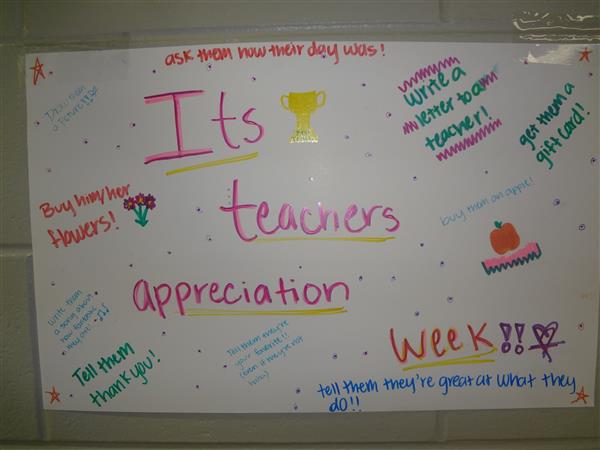 ask them how their day was!
Draw them
a picture!!
Its
write a
letter to a
teacher!
get them a
gift card!
Buy him/her
flowers!
teachers
buy them an apple!
appreciation
write them
a song about
how fantastic
they are!
Tell them
thank you!
Tell them they're
your favorite!!
(even if they're not
haha)
week!!
tell them they're great at what they
do!!